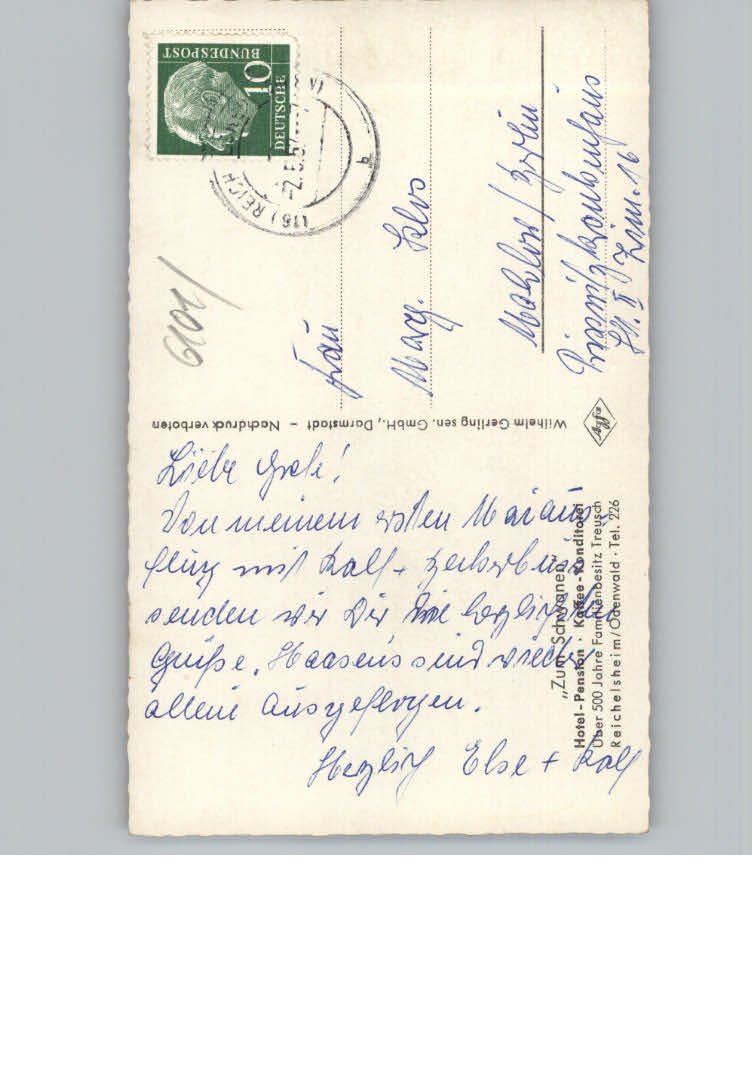 DEUTSCHE
BUNDESPOST
10
(16) REICH
-2.5.57
b
6101/
Frau
Marg. Klos
Mahlow / Berlin
Diakonissenkrankenhaus
St. II Zim. 16
Wilhelm Gerling sen. GmbH., Darmstadt – Nachdruck verboten
Agfa
Liebe Grete!
Von meinem ersten Maiaus-
flug mit Ralf +
senden wir Dir die herzlichsten
Grüße. Haasens sind wieder
allein ausgeflogen.
Herzlich Else + Ralf
„Zum Schwanen"
Hotel-Pension · Kaffee-Konditorei
Über 500 Jahre Familienbesitz Treusch
Reichelsheim/Odenwald · Tel. 226